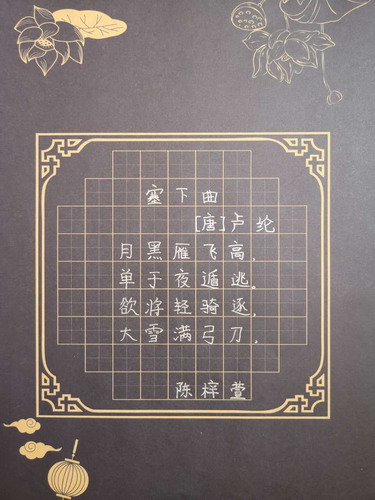 塞下曲
[唐]卢纶
月黑雁飞高,
单于夜遁逃。
欲将轻骑逐,
大雪满弓刀,
陈梓萱